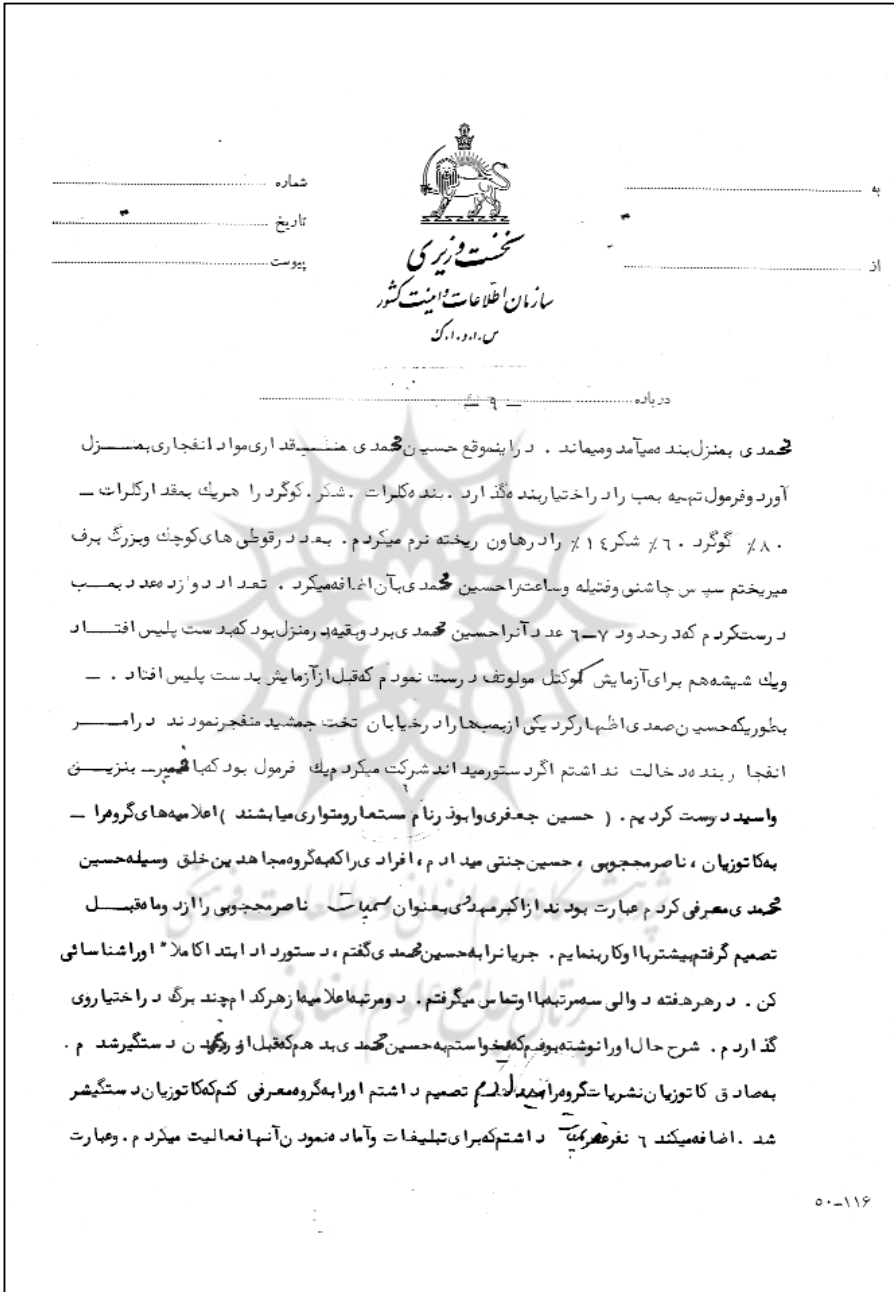 به
شماره
تاریخ
از
پیوست
نخست وزیری
سازمان اطلاعات و امنیت کشور
س.ا.و.ا.ک
درباره
— ٩ —
محمدی بمنزل بنده میآمد ومیماند . دراینموقع حسین محمدی مقداری مواد انفجاری بمنزل
آورد وفرمول تهیه بمب را در اختیار بنده گذارد .
میریختم سپس چاشنی وفتیله وساعت را حسین محمدی بآن اضافه میکرد . تعداد دوازده عدد بمب
درست کردم که در حدود ٧ــ٦ عدد آنرا حسین محمدی برد وبقیه در منزل بود که بدست پلیس افتاد
ویك شیشه هم برای آزمایش کوکتل مولوتف درست نمودم که قبل از آزمایش بدست پلیس افتاد . ــ
بطوریکه حسین صمدی اظهار کرد یکی از بمبها را در خیابان تخت جمشید منفجر نمودند در امر
انفجار بنده دخالت نداشتم اگر دستور میداند شرکت میکردم
( حسین جعفری وابوذر نام مستعار ومتواری میابشند )اعلامیه های گروه را ــ
به کاتوزیان ، ناصر محجوبی ، حسین جنتی میدادم ، افرادی را که به گروه مجاهدین خلق وسیله حسین
محمدی معرفی کردم عبارت بودند از اکبر مهدی بعنوان سمپات ناصر محجوبی را از دو ماه قبل
تصمیم گرفتم بیشتر با او کار بنمایم . جریانرا به حسین محمدی گفتم ، دستور داد ابتدا کاملا" اورا شناسائی
کن . در هر هفته دو الی سه مرتبه با او تماس میگرفتم . دو مرتبه اعلامیه از هرکدام چند برگ در اختیار وی
گذاردم . شرح حال اورا نوشته بودم که میخواستم به حسین محمدی بدهم که قبل از دستگیر شدم .
به صادق کاتوزیان نشریات گروه را تصمیم داشتم اورا به گروه معرفی کنم که کاتوزیان دستگیر
شد . اضافه میکند ٦ نفر داشتم که برای تبلیغات وآماده نمودن آنها فعالیت میکردم . وعبارت
٥٠ــ١١۶